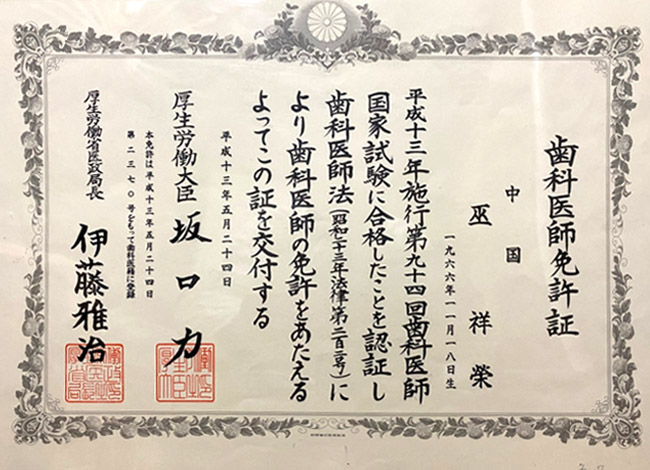 歯科医師免許証
中国
巫祥榮
一九六六年一一月一八日生
平成十三年施行第九十四回歯科医師
国家試験に合格したことを認証し
歯科医師法(昭和二十三年法律第二百二号)に
より歯科医師の免許をあたえる
よってこの証を交付する
平成十三年五月二十四日
厚生労働大臣 坂口力
本免許は平成十三年五月二十四日
第二三七〇号をもって歯科医籍に登録
厚生労働省医政局長 伊藤雅治